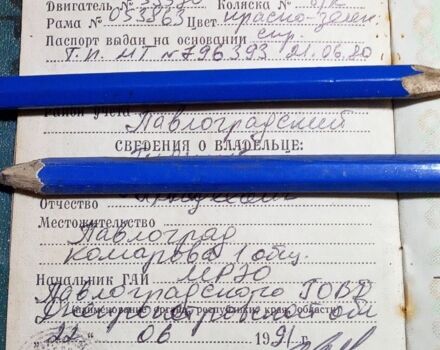 Двигатель №
Коляска №
Рама № 053863 Цвет красно-зелен.
Паспорт выдан на основании спр.
Т.П. МТ №796393 21.06.80
Район учета
Павлоградский
СВЕДЕНИЯ О ВЛАДЕЛЬЦЕ:
Отчество
Местожительство
Павлоград
Комарова 1 общ.
Начальник ГАИ МРЭО
Павлоградского ГОВД
Днепропетровской обл
(наименование органа, республики, края, области)
22 " 06 1991 г.